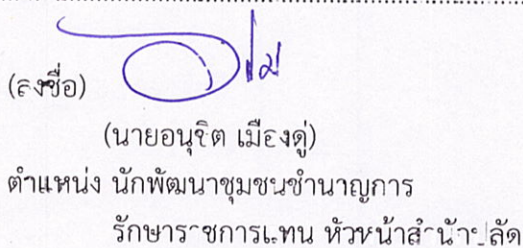 (ลงชื่อ)
(นายอนุชิต เมืองดู่)
ตำแหน่ง นักพัฒนาชุมชนชำนาญการ
รักษาราชการแทน หัวหน้าสำนักปลัด